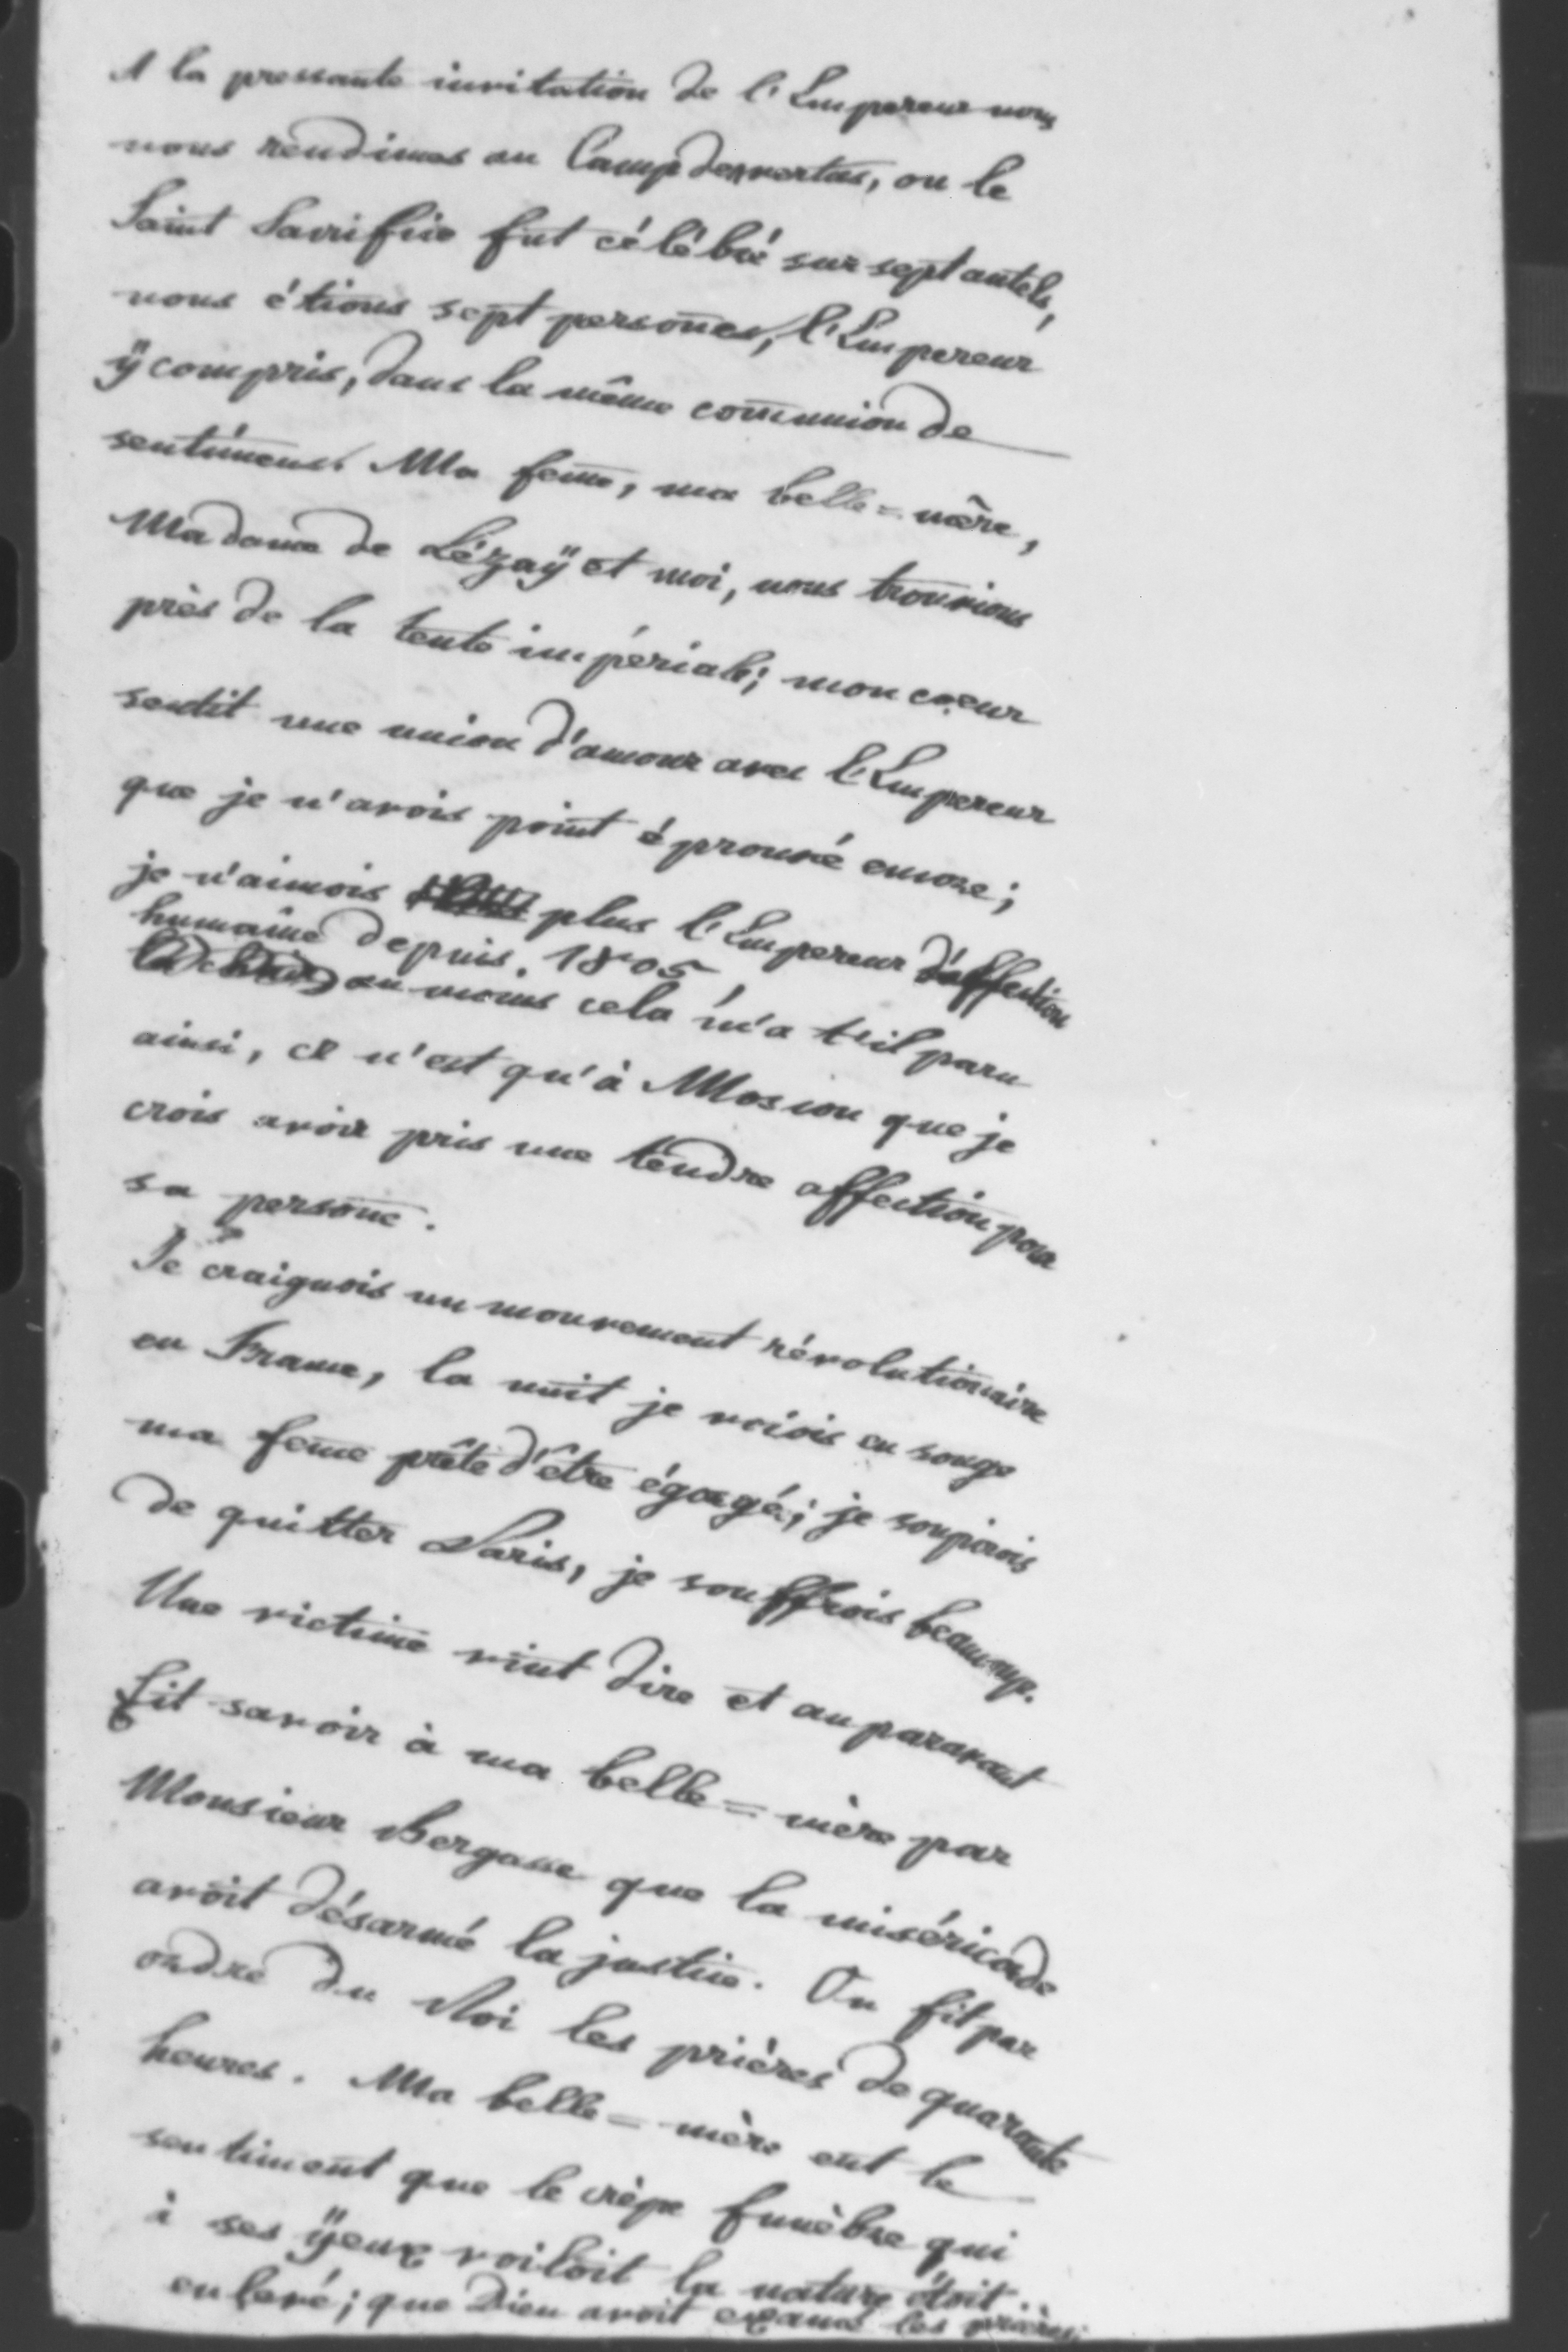 A la pressante invitation de l'Empereur nous
nous rendimes au Camp des vertus, ou le
Saint Sacrifice fut célébré sur sept autels,
nous étions sept persones, l'Empereur
ÿ compris, dans la même comunion de
sentimens. Ma feme, ma belle=mère,
Madame de Lézaÿ et moi, nous trouvions
près de la tente impériale; mon coeur
sentit une union d'amour avec l'Empereur
que je n'avois point éprouvé encore;
je n'aimois plus l'Empereur d'affection
humaine depuis 1805
au moins cela m'a t'il paru
ainsi, ce n'est qu'à Moscou que je
crois avoir pris une tendre affection pour
sa persone.
Je craignois un mouvement révolutionaire
en France, la nuit je voiois en songe
ma feme prête d'être égorgée; je soupirois
de quitter Paris, je souffrois beaucoup.
Une victime vint dire et auparavant
fit savoir à ma belle=mère par
Monsieur Bergasse que la miséricorde
avoit désarmé la justice. On fit par
ordre du Roi les prières de quarante
heures. Ma belle=mère eut le
sentiment que le crèpe funèbre qui
à ses ÿeux voiloit la nature étoit
enlevé; que Dieu avoit exaucé les prières